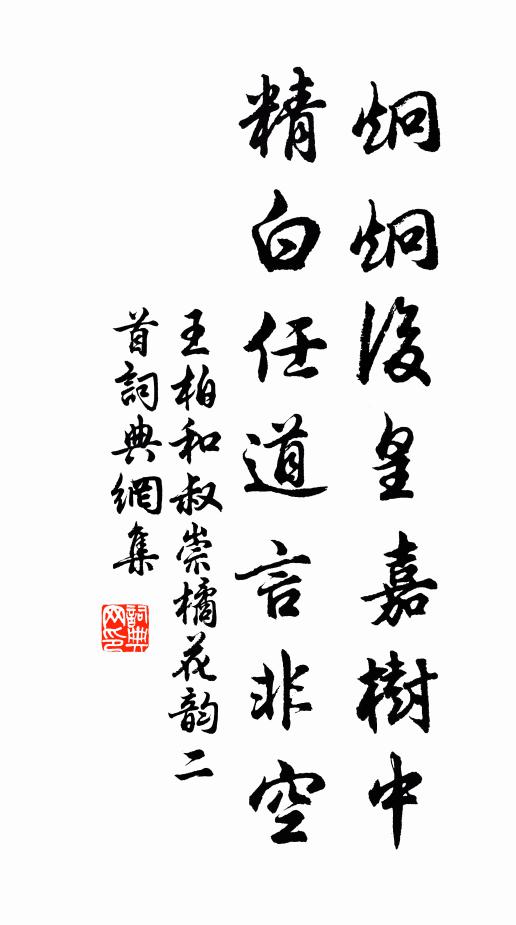 炯炯後皇嘉樹中
精白任道言非空
王柏和叔崇橘花韵二
首詞典網集
詞典网印